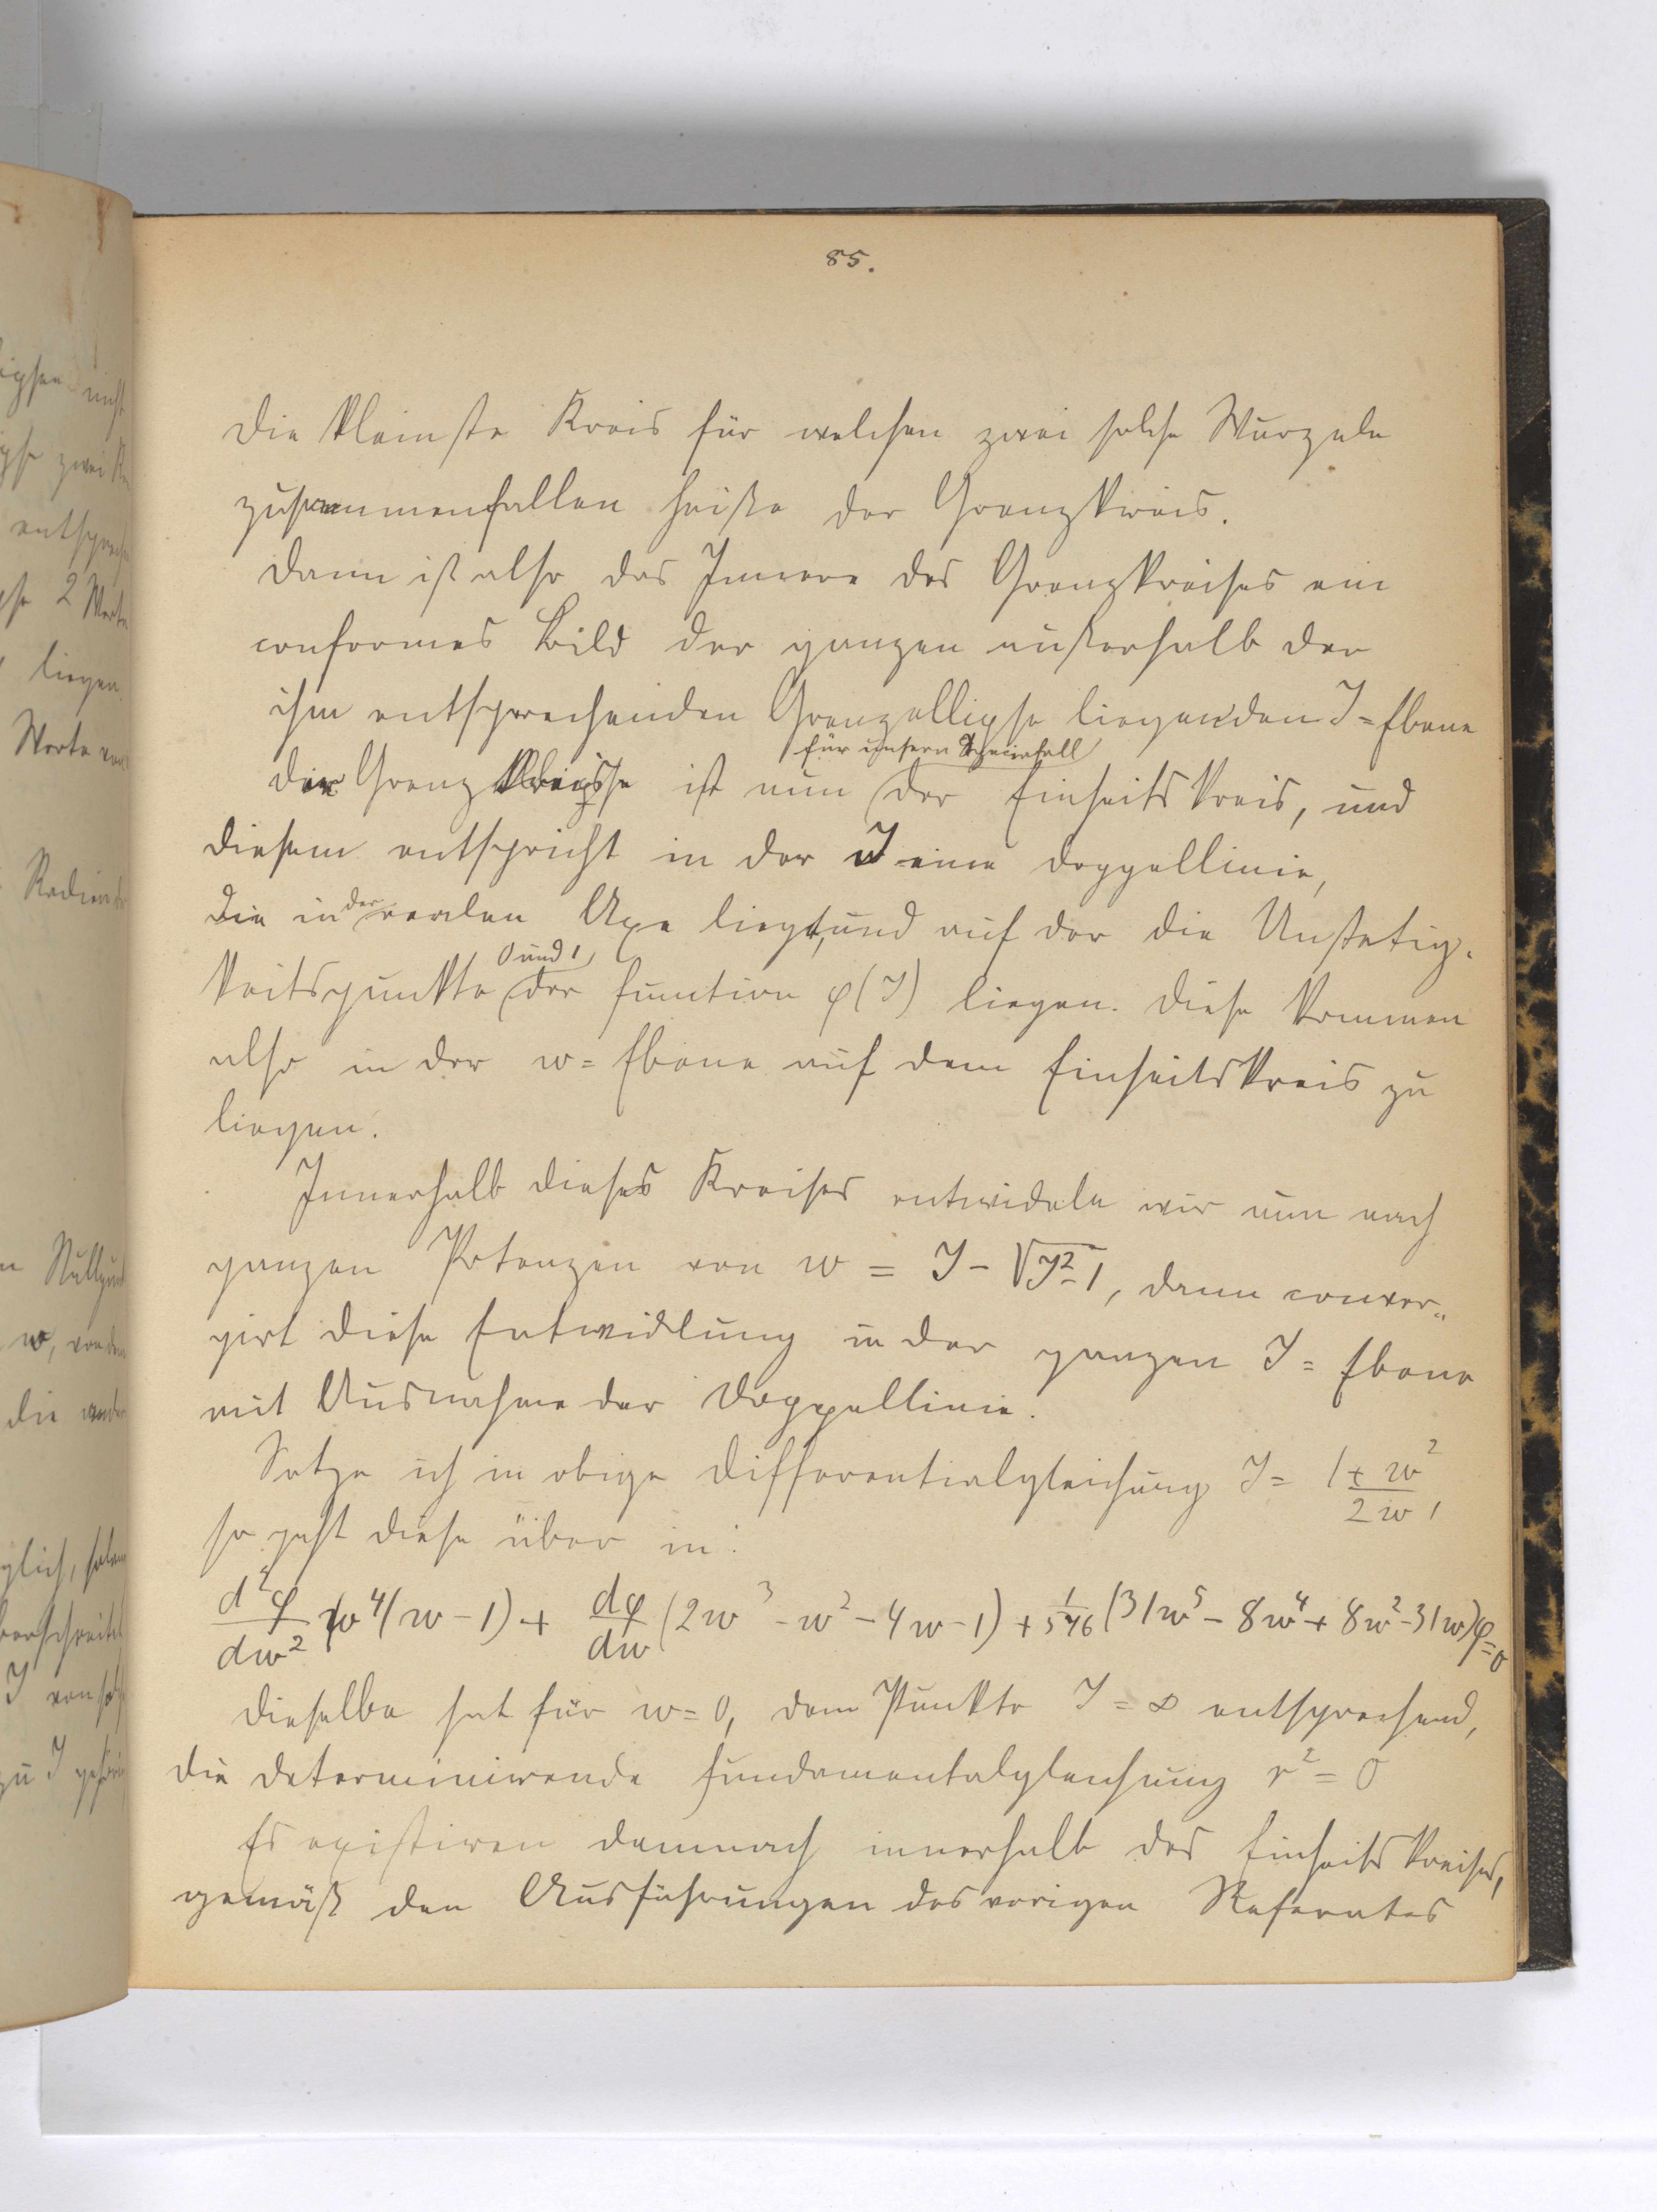 85.
Die kleinste Kreis für welchen zwei solche Wurzeln
zusammenfallen heiße der Grenzkreis.
Dann ist also das Innere des Grenzkreises ein
conformes Bild der ganzen außerhalb der
ihm entsprechenden Grenzellipse liegenden J=Ebene
für unsern Specialfall
Der Grenz ist nun der Einheitskreis, und
diesem entspricht in der J eine Doppellinie,
die in der realen Axe liegt, und auf der die Unstetig-
0 und 1
keitspunkte der Function φ(J) liegen. Diese kommen
also in der w=Ebene auf dem Einheitskreis zu
liegen.
Innerhalb dieses Kreises entwickeln wir nun nach
ganzen Potenzen von w = J - √J²-1, dann conver-
girt diese Entwicklung in der ganzen J=Ebene
mit Ausnahme der Doppellinie.
Setze ich in obige Differentialgleichung J = 1+w²/2w,
so geht diese über in:
d²φ/dw² w⁴(w-1) + dφ/dw (2w³-w²-4w-1) + (31w⁵-8w⁴+8w²-31w)φ=0
Dieselbe hat für w=0, dem Punkte J=∞ entsprechend,
die determinirende Fundamentalgleichung r²=0
Es existiren demnach innerhalb des Einheitskreises,
gemäß den Ausführungen des vorigen Referates